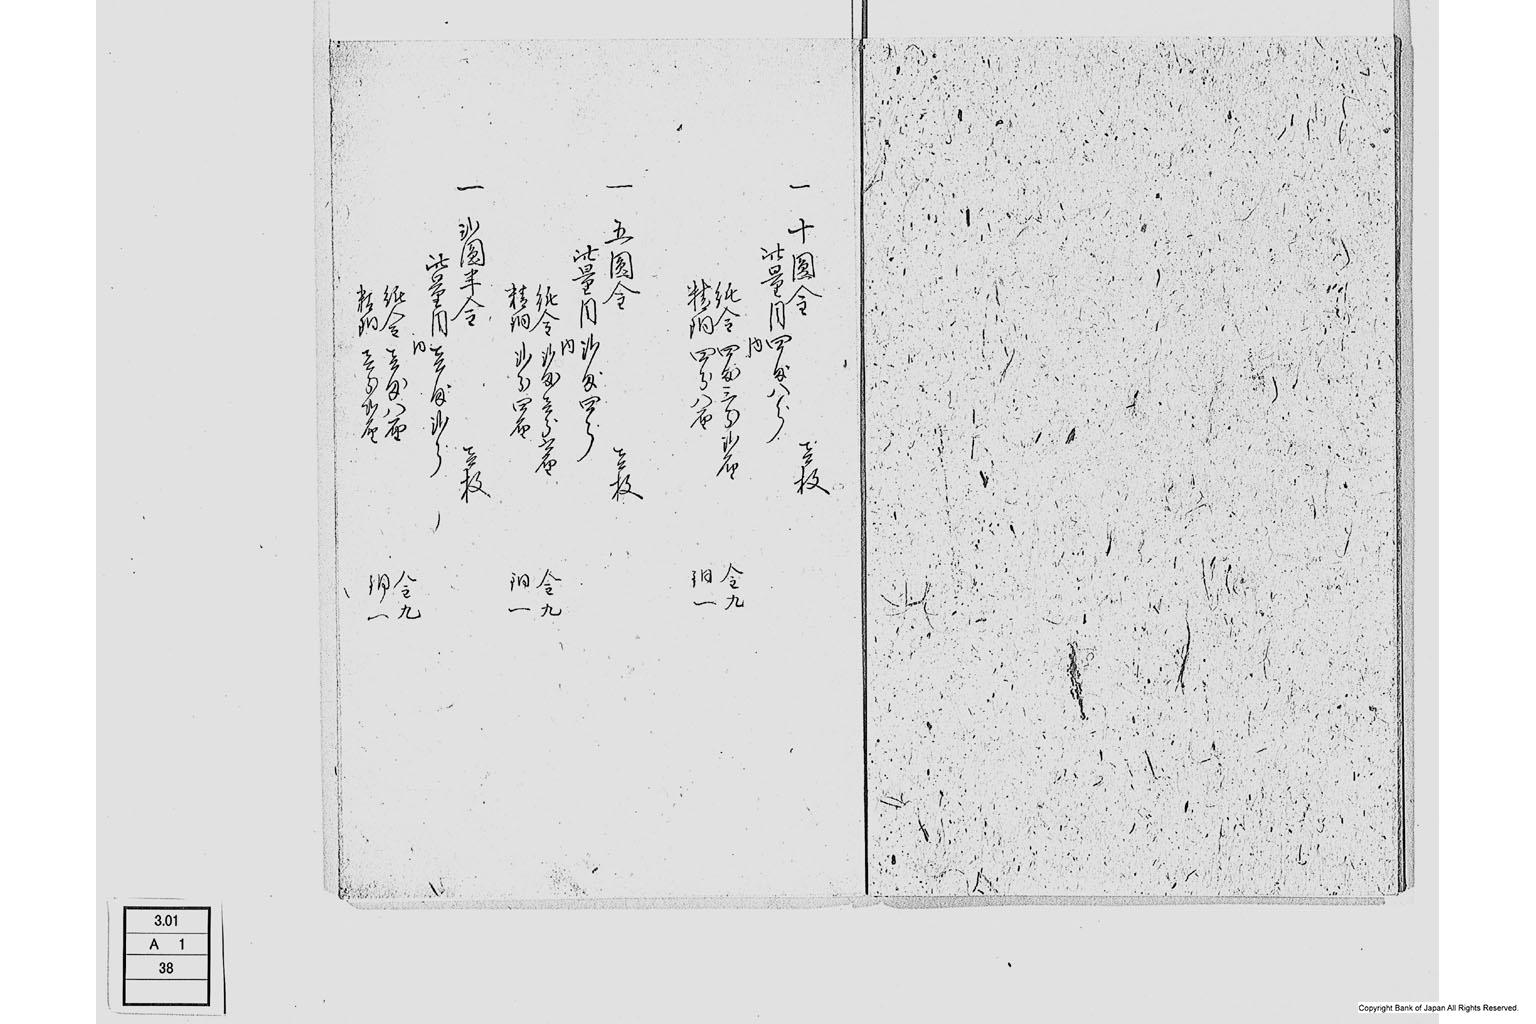 一 十圓金 壱枚
此量目四匁八分
内
純金四匁三分弐厘 金九
精銅四分八厘 銅一
一 五圓金 壱枚
此量目弐匁四分
内
純金弐匁壱分六厘 金九
精銅弐分四厘 銅一
一 弐圓半金 壱枚
此量目壱匁弐分
内
純金壱匁八厘 金九
精銅壱分弐厘 銅一
3.01
A 1
38
Copyright Bank of Japan All Rights Reserved.